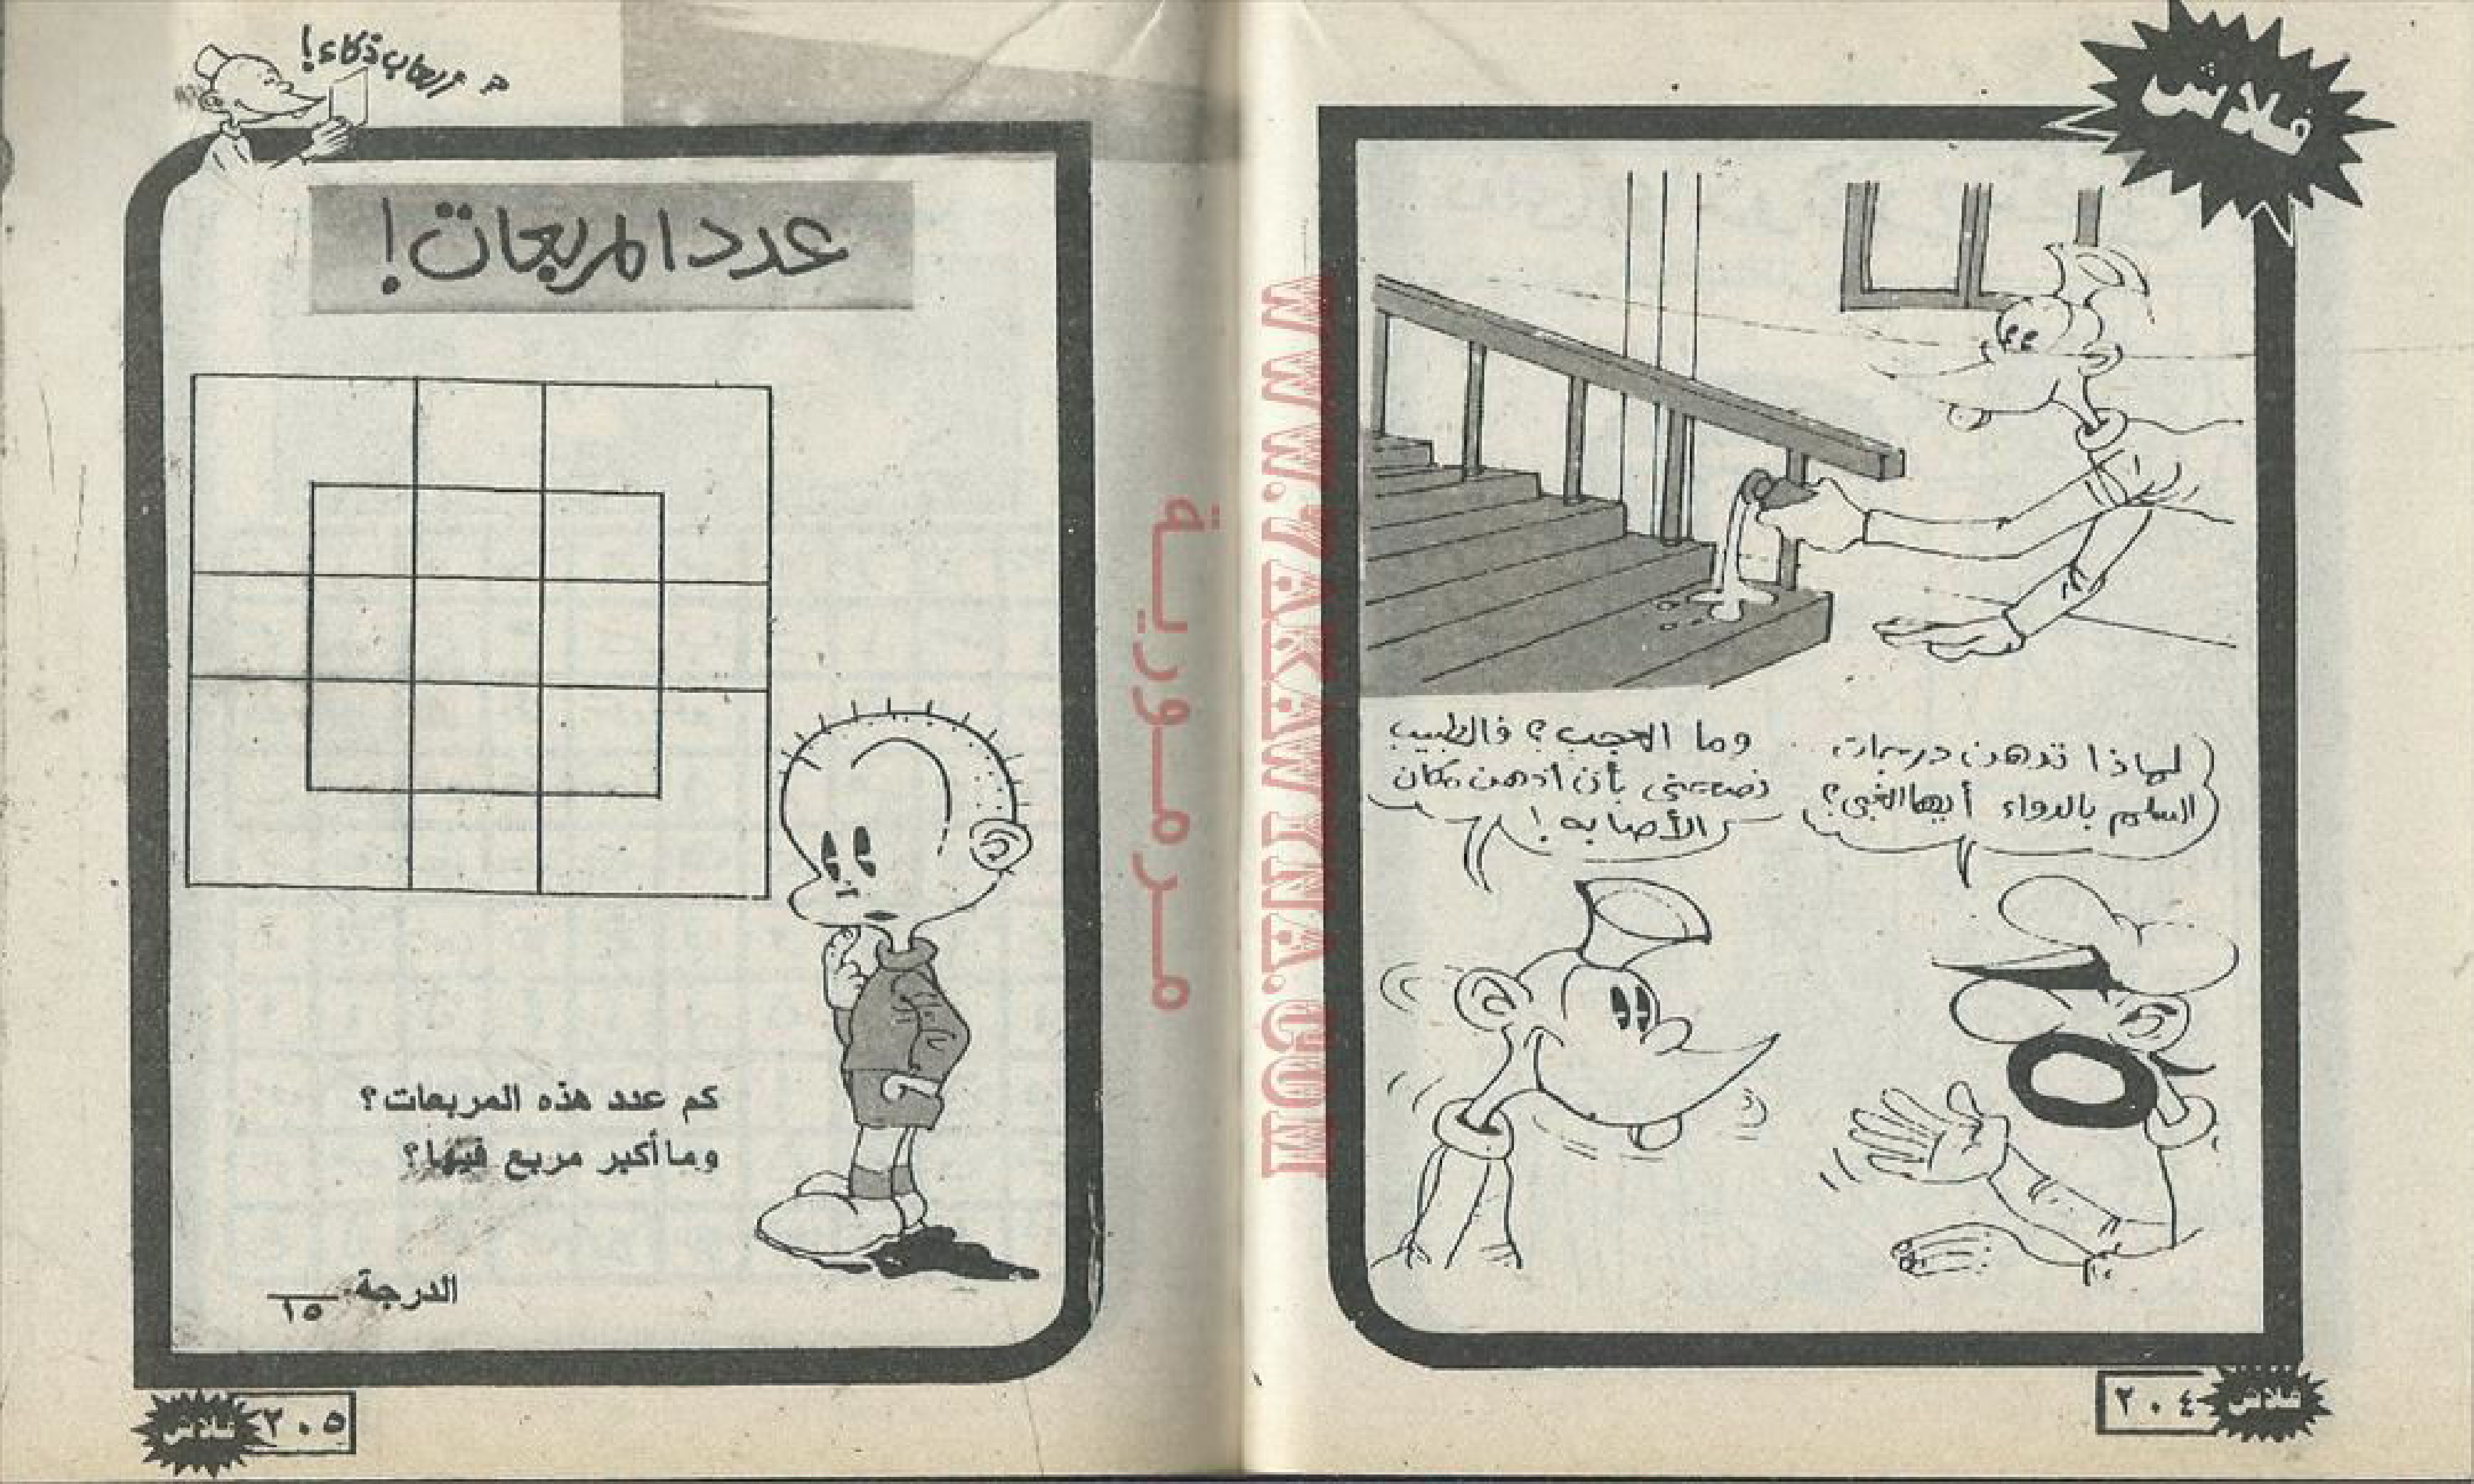 فلاش
لماذا تدهن درجات
السلم بالدواء أيها الغبى؟
وما العجب؟ فالطبيب
نصحنى بأن أدهن مكان
الأصابه!
٢٠٤
فلاش
WWW.7AKAWYNA.COM
مرمورية
ألعاب ذكاء!
عدد المربعات!
كم عدد هذه المربعات؟
وما أكبر مربع فيها؟
الدرجة
١٥
٢٠٥
فلاش